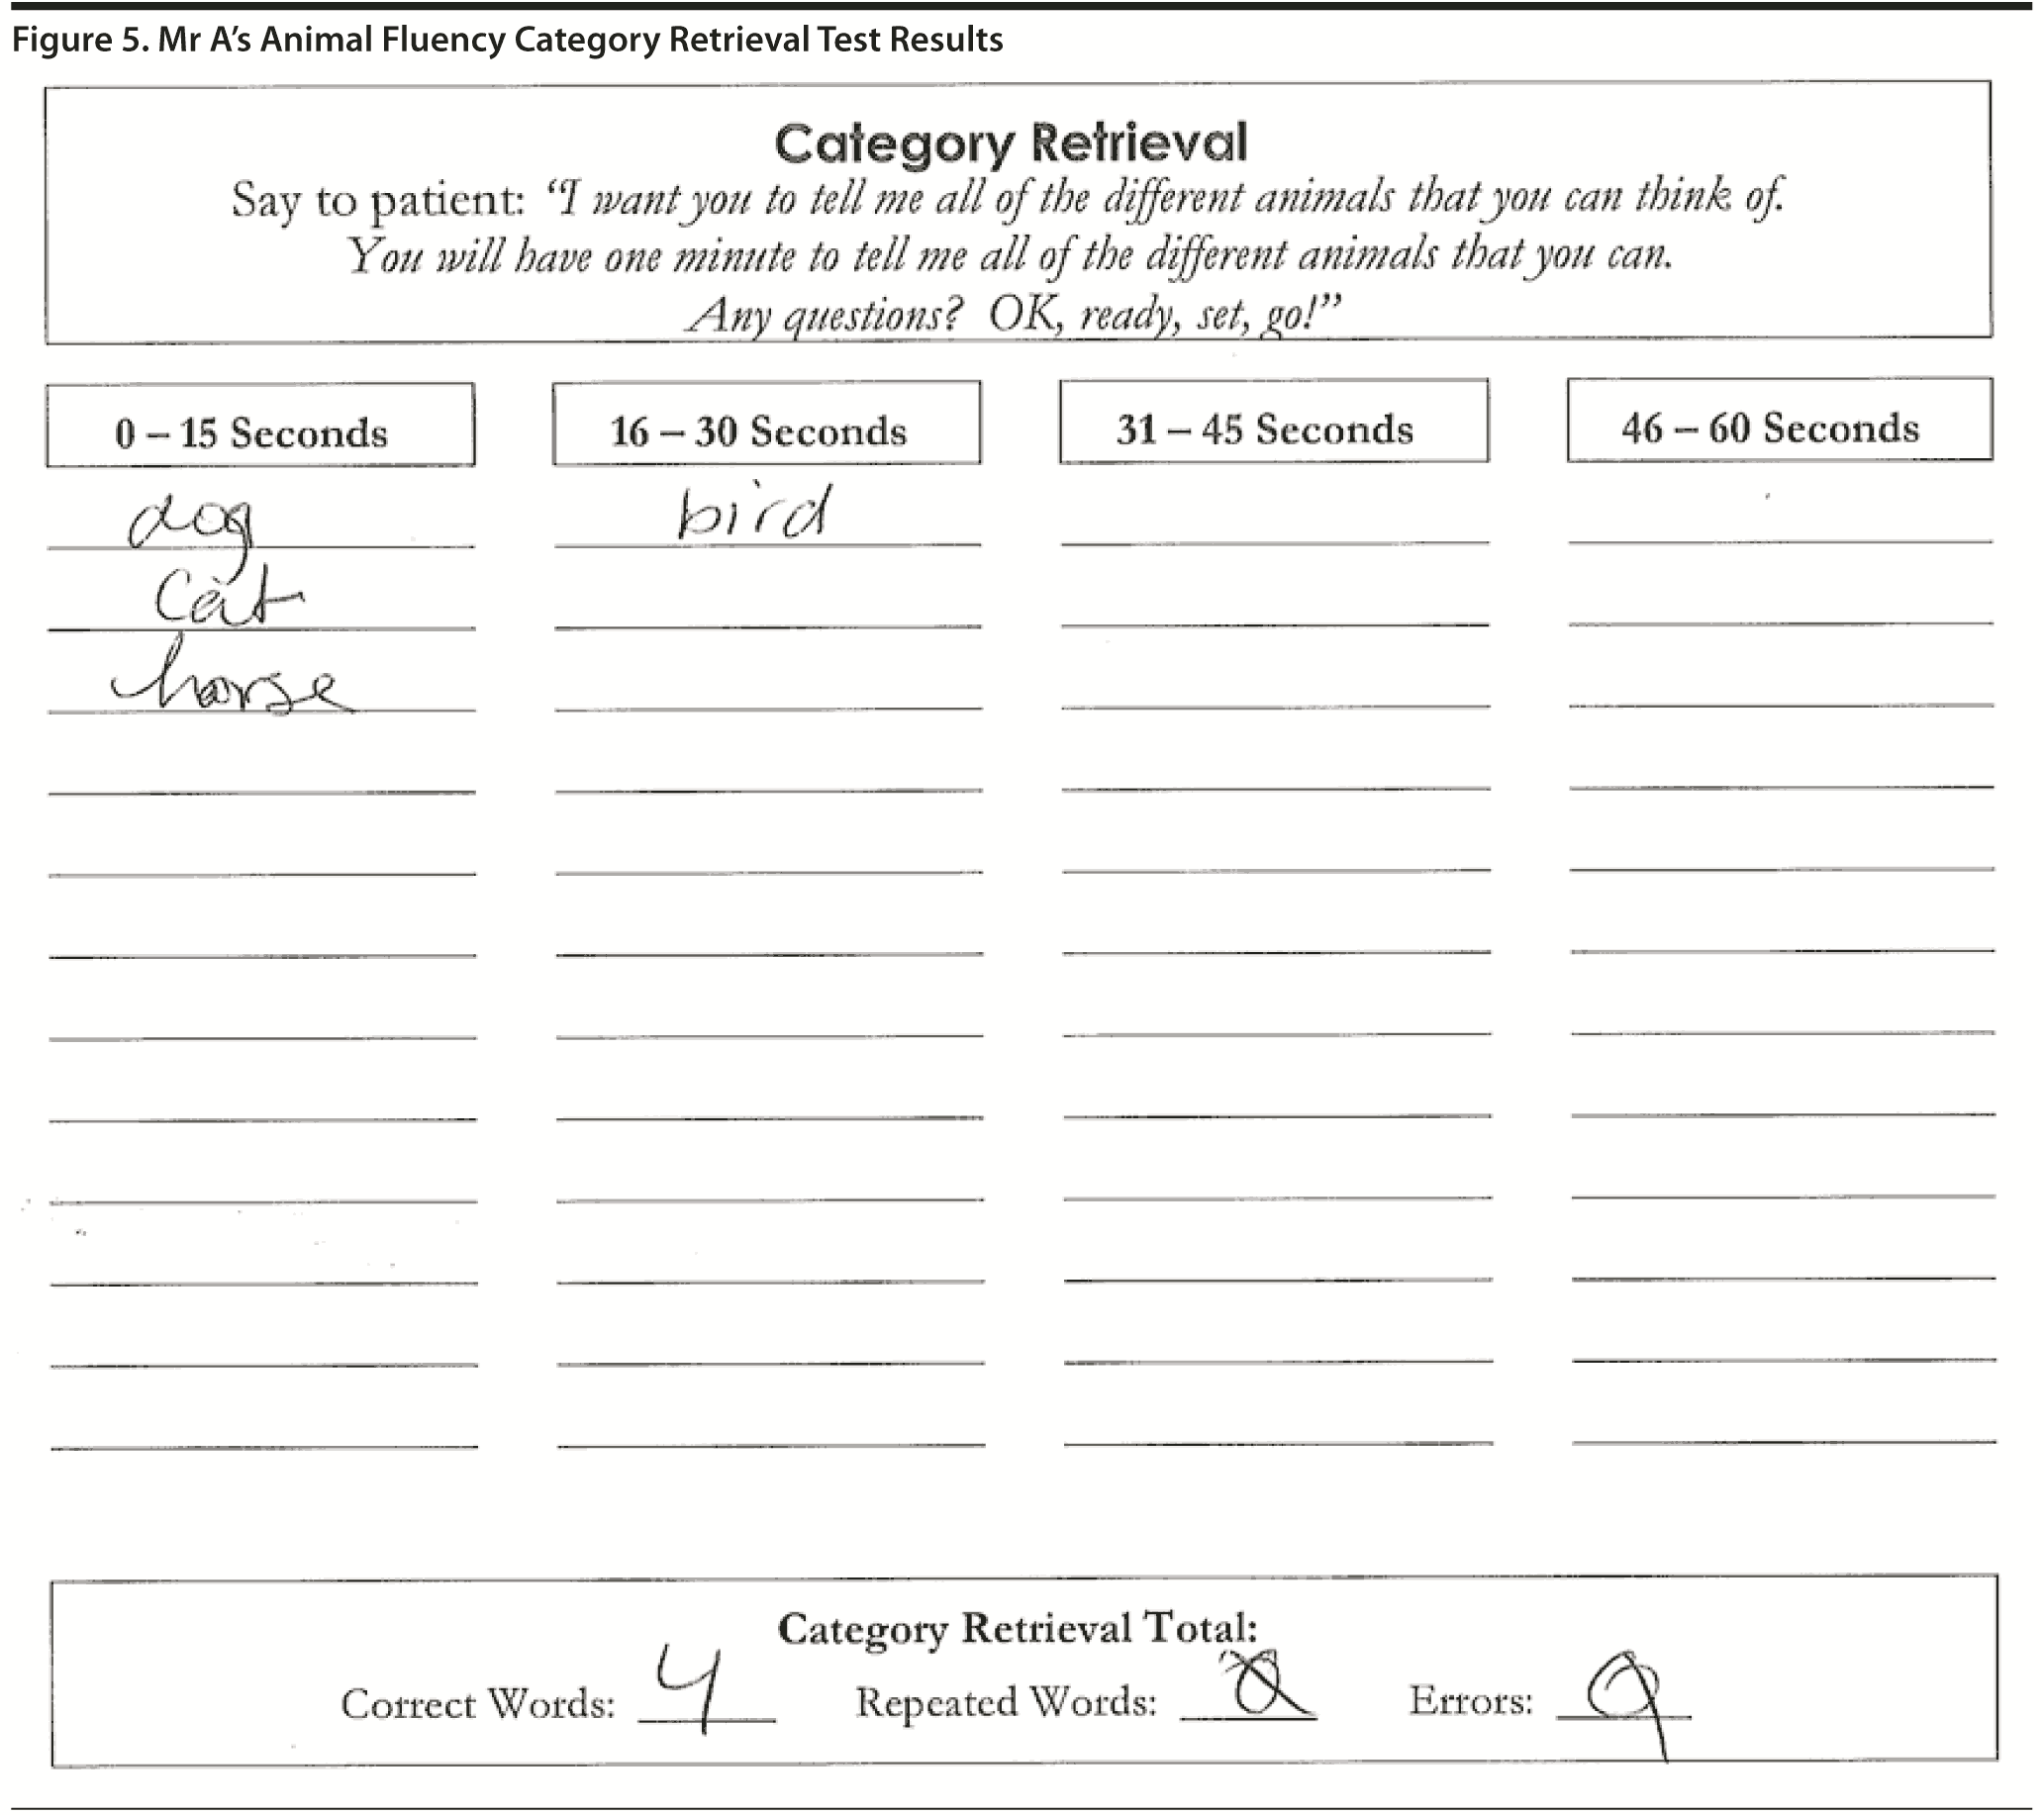 Figure 5. Mr A's Animal Fluency Category Retrieval Test Results
Category Retrieval
Say to patient: "I want you to tell me all of the different animals that you can think of.
You will have one minute to tell me all of the different animals that you can.
Any questions? OK, ready, set, go!"
0 – 15 Seconds 16 – 30 Seconds 31 – 45 Seconds 46 – 60 Seconds
dog bird
cat
horse
Category Retrieval Total:
Correct Words: 4 Repeated Words: Errors: